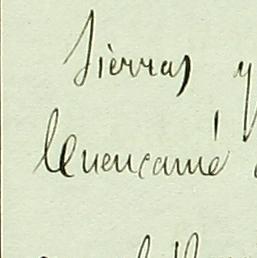 sierras y
Cuencamé